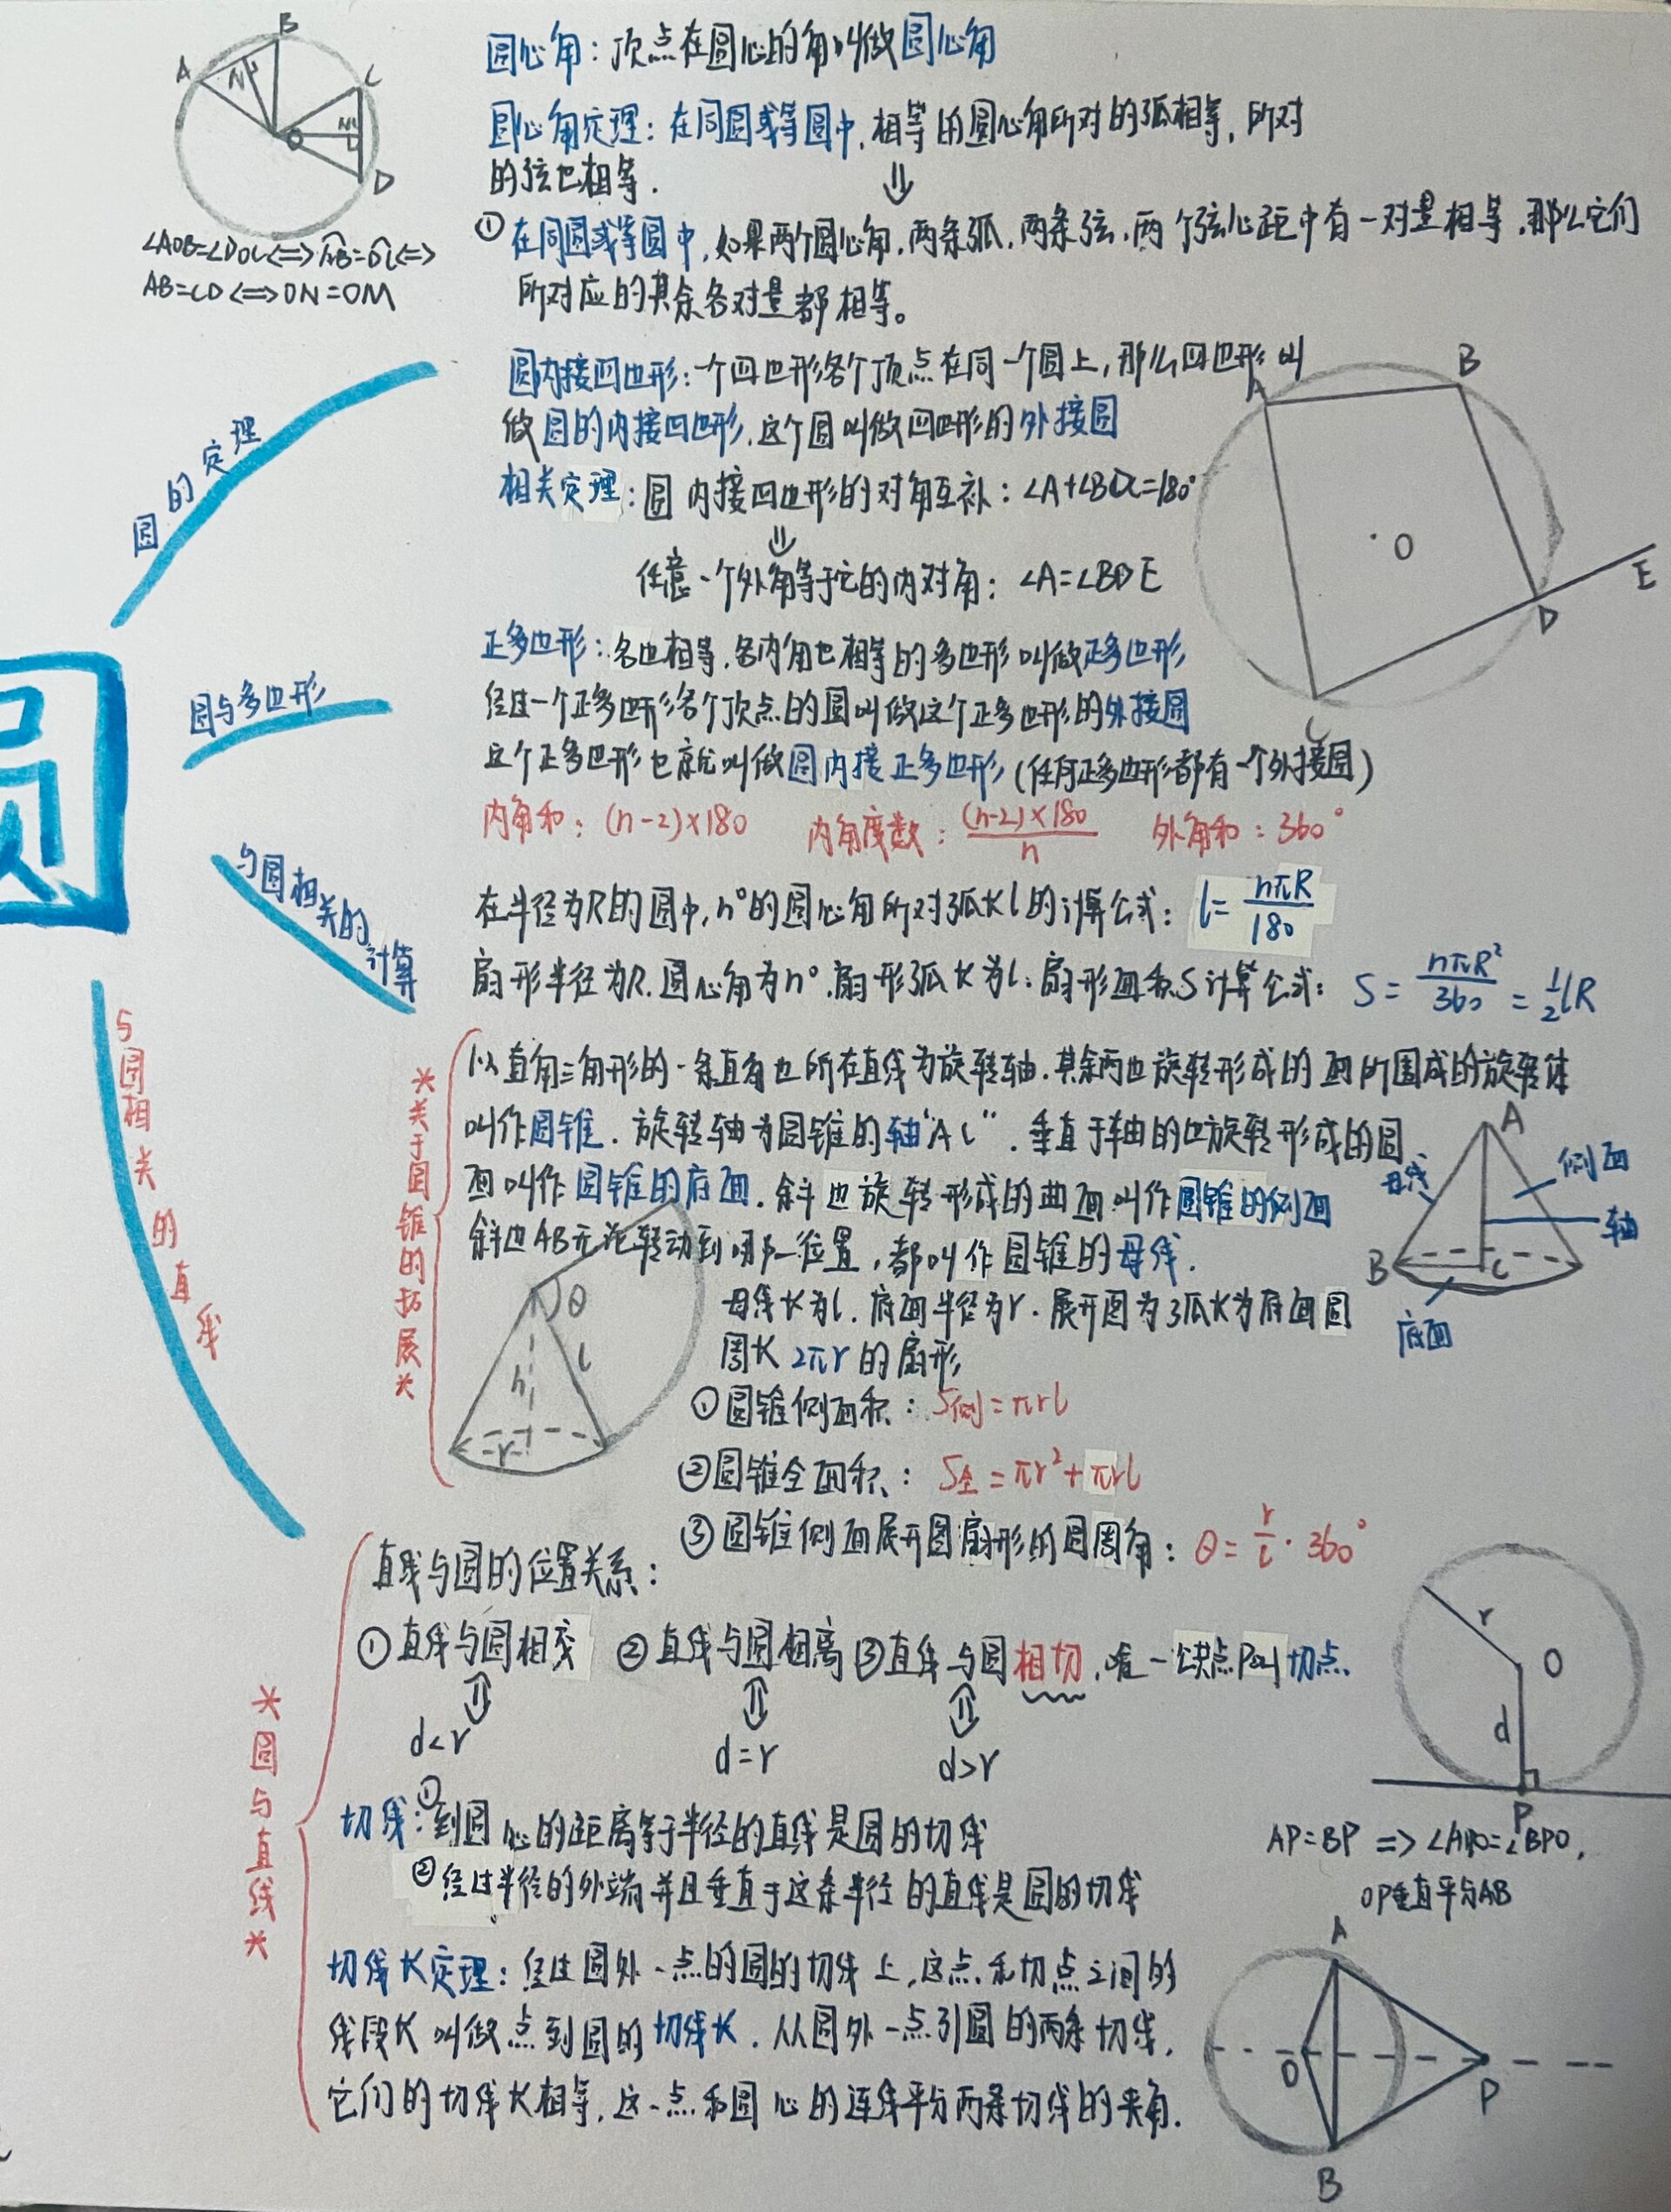 圆
圆的定理
圆心角：顶点在圆心的角叫做圆心角
圆心角定理：在同圆或等圆中，相等的圆心角所对的弧相等，所对
的弦也相等．
⇓
①在同圆或等圆中，如果两个圆心角，两条弧，两条弦，两个弦心距中有一对量相等，那么它们
所对应的其余各对量都相等。
A B C D O N M
∠AOB=∠DOC⟺AB=DC⟺
AB=CD⟺ON=OM
圆与多边形
圆内接四边形：一个四边形各个顶点在同一个圆上，那么四边形叫
做圆的内接四边形，这个圆叫做四边形的外接圆
相关定理：圆内接四边形的对角互补：∠A+∠BDC=180°
⇓
任意一个外角等于它的内对角：∠A=∠BDE
A B O E D C
正多边形：各边相等，各内角也相等的多边形叫做正多边形
经过一个正多边形各个顶点的圆叫做这个正多边形的外接圆
这个正多边形也就叫做圆内接正多边形（任何正多边形都有一个外接圆）
内角和：(n-2)×180 内角度数：(n-2)×180/n 外角和：360°
与圆相关的计算
在半径为R的圆中，n°的圆心角所对弧长l的计算公式：l=nπR/180
扇形半径为R，圆心角为n°，扇形弧长为l：扇形面积S计算公式：S=nπR²/360=½lR
*关于圆锥的拓展*
以直角三角形的一条直角边所在直线为旋转轴，其余两边旋转形成的面所围成的旋转体
叫作圆锥．旋转轴为圆锥的轴“AC”．垂直于轴的边旋转形成的圆
面叫作圆锥的底面．斜边旋转形成的曲面叫作圆锥的侧面
斜边AB无论转动到哪一位置，都叫作圆锥的母线．
A 母线 侧面 轴 B C 底面
θ l h r
母线长为l．底面半径为r．展开图为弧长为底面圆
周长2πr的扇形
①圆锥侧面积：S侧=πrl
②圆锥全面积：S全=πr²+πrl
③圆锥侧面展开图扇形的圆周角：θ=r/l·360°
与圆相关的直线
*圆与直线*
直线与圆的位置关系：
①直线与圆相交 ②直线与圆相离 ③直线与圆相切，唯一公共点P叫切点
⇕ ⇕ ⇕
d<r d=r d>r
r O d P
切线：①到圆心的距离等于半径的直线是圆的切线
②经过半径的外端并且垂直于这条半径的直线是圆的切线
切线长定理：经过圆外一点的圆的切线上，这点和切点之间的
线段长叫做点到圆的切线长．从圆外一点引圆的两条切线，
它们的切线长相等，这一点和圆心的连线平分两条切线的夹角．
AP=BP=>∠APO=∠BPO，
OP垂直平分AB
A O P B